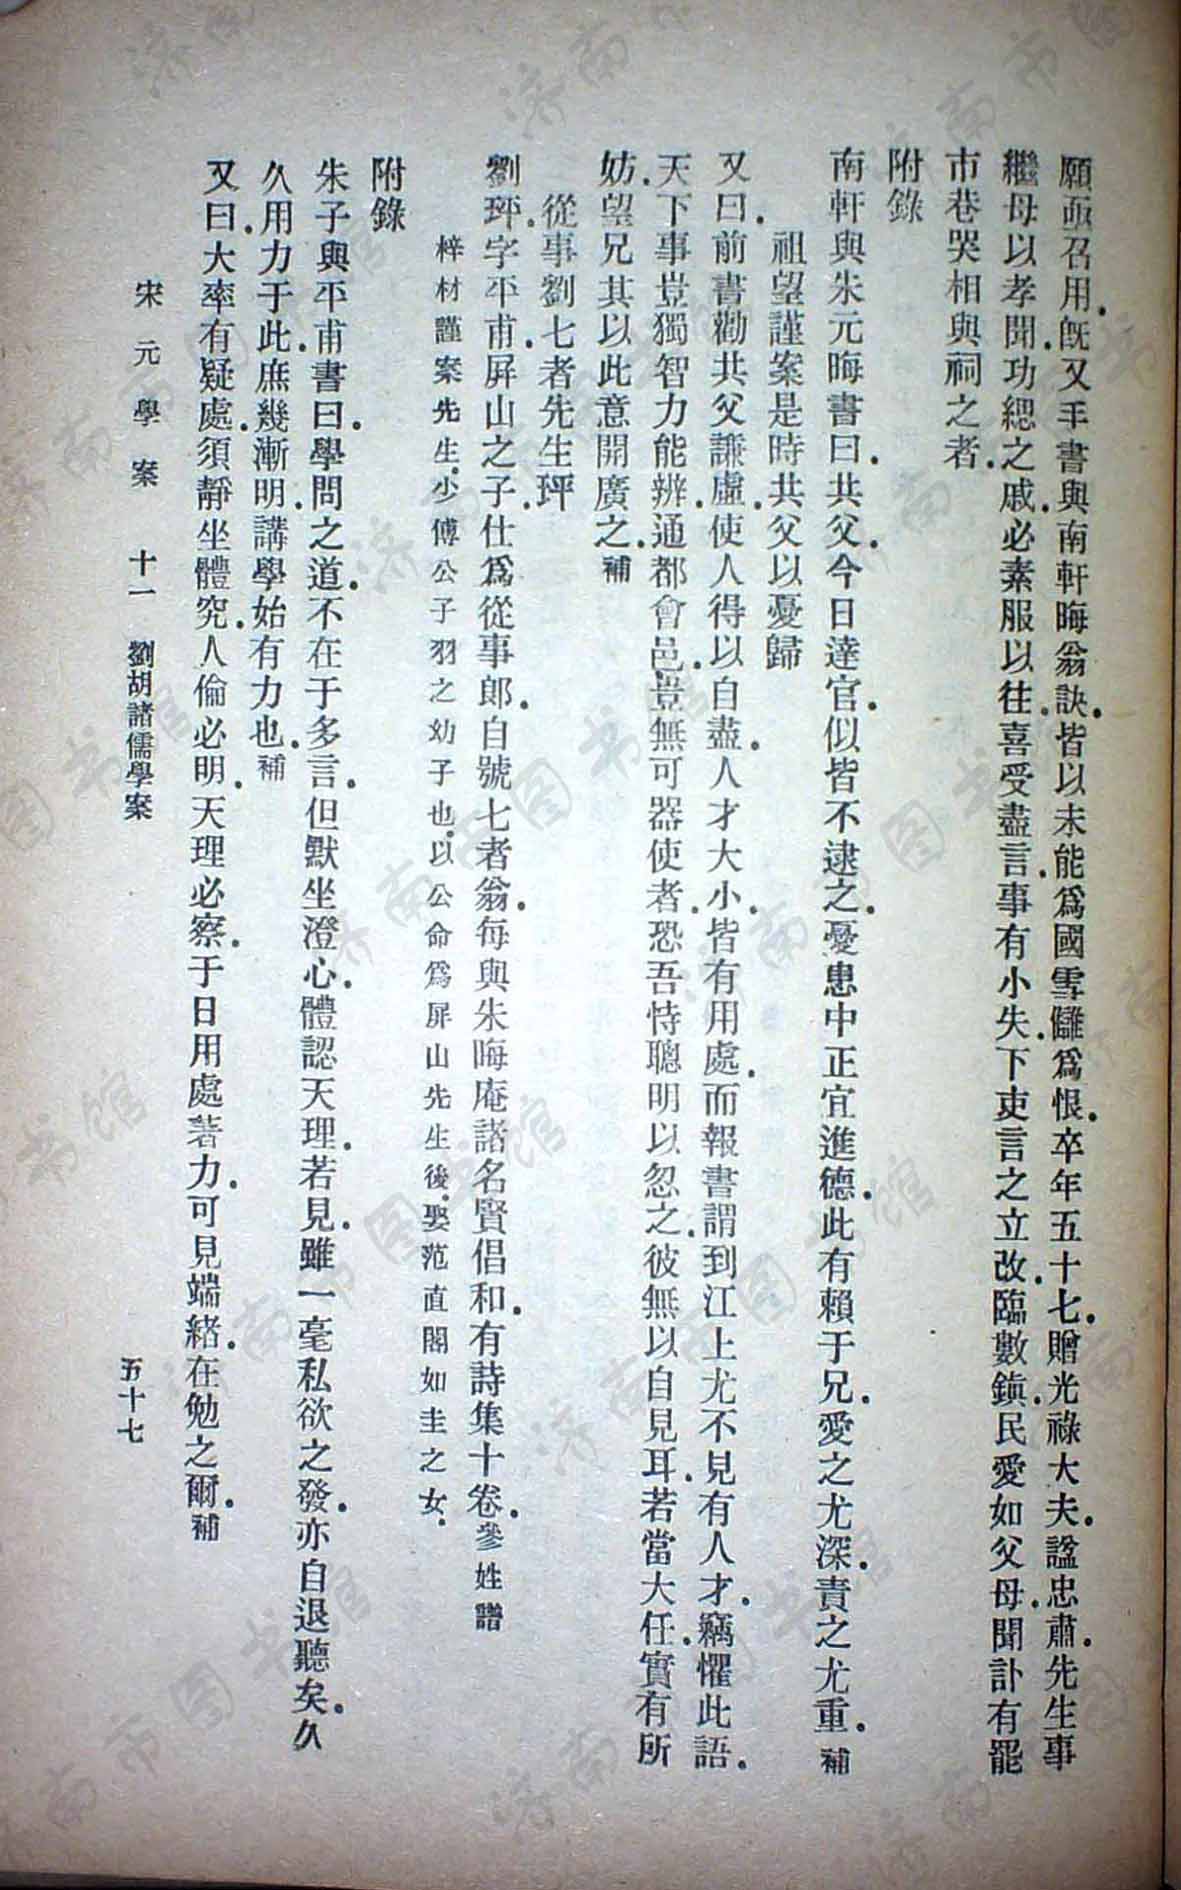 願亟召用.既又手書與南軒晦翁訣.皆以未能爲國雪讎爲恨.卒年五十七.贈光祿大夫.諡忠肅.先生事
繼母以孝聞.功緦之戚.必素服以往.喜受盡言.事有小失.下吏言之立改.臨數鎭.民愛如父母.聞訃有罷
市巷哭相與祠之者.
附錄
南軒與朱元晦書曰.共父.今日達官.似皆不逮之.憂患中正宜進德.此有賴于兄.愛之尤深.責之尤重.補
祖望謹案是時共父以憂歸
又曰.前書勸共父謙虛.使人得以自盡.人才大小.皆有用處.而報書謂到江上尤不見有人才.竊懼此語.
天下事豈獨智力能辨.通都會邑.豈無可器使者.恐吾恃聰明以忽之.彼無以自見耳.若當大任.實有所
妨.望兄其以此意開廣之.補
從事劉七者先生玶
劉玶.字平甫.屏山之子.仕爲從事郎.自號七者翁.每與朱晦庵諸名賢倡和.有詩集十卷.參姓譜
梓材謹案先生.少傅公子羽之幼子也.以公命爲屏山先生後.娶范直閣如圭之女.
附錄
朱子與平甫書曰.學問之道.不在于多言.但默坐澄心.體認天理.若見.雖一毫私欲之發.亦自退聽矣.久
久.用力于此.庶幾漸明.講學始有力也.補
又曰.大率有疑處.須靜坐體究.人倫必明.天理必察.于日用處著力.可見端緒.在勉之爾.補
宋元學案 十一 劉胡諸儒學案 五十七
济南市图书馆